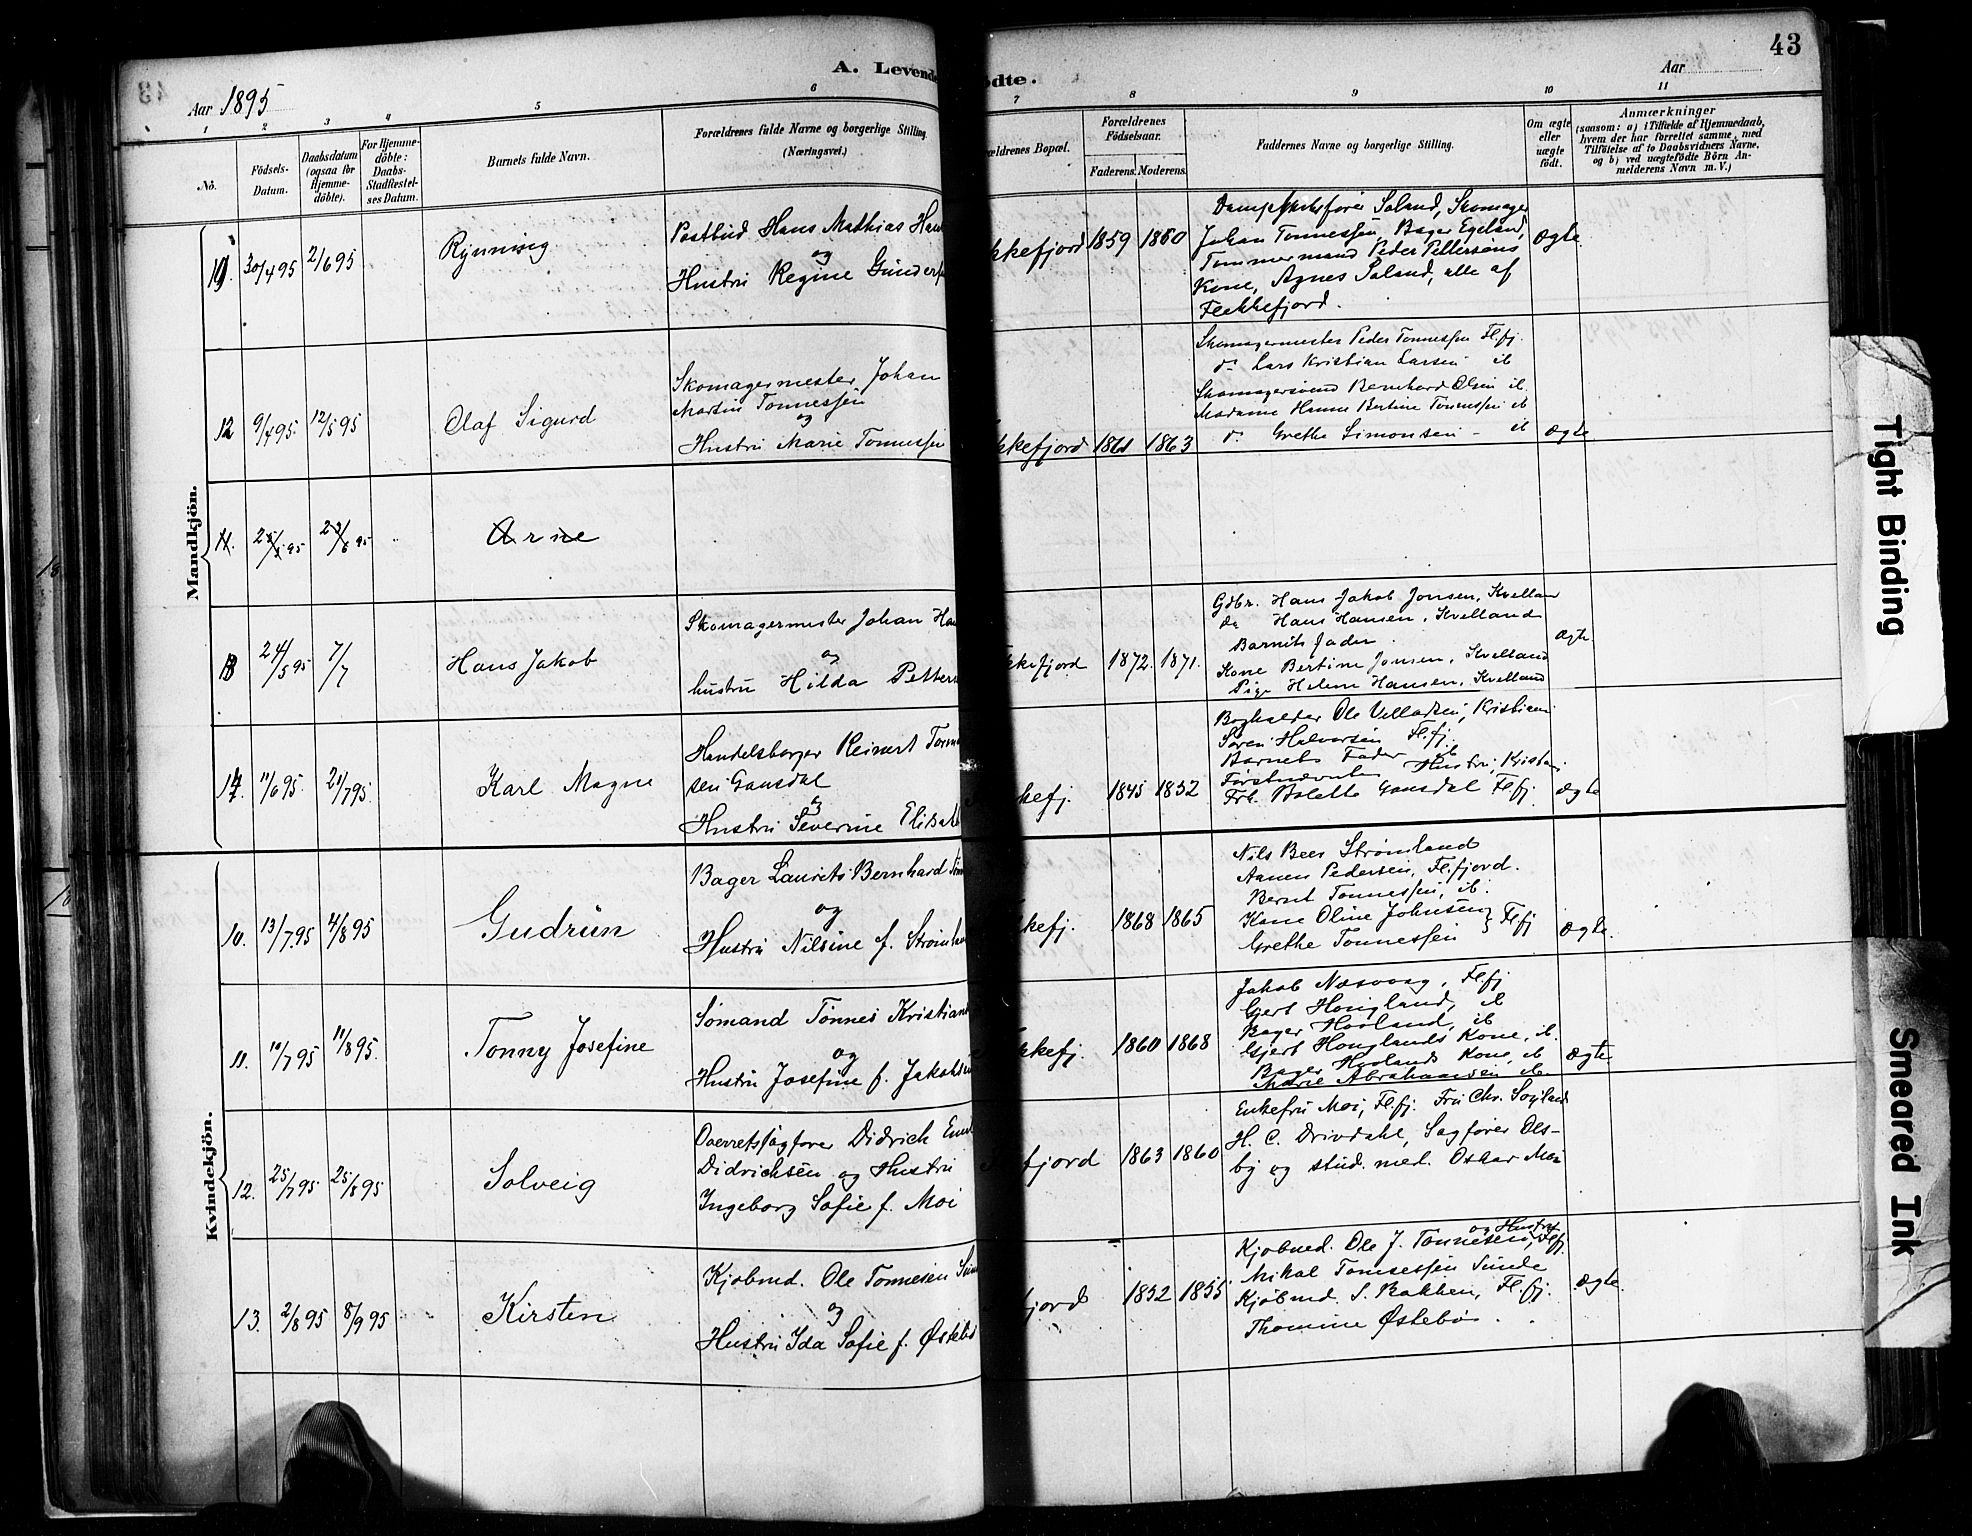 43
A. Levende
ødte.
Aar 1895
Aar
1 2 3 4 5 6 7 8 9 10 11
No.
Födsels-
Datum.
Daabsdatum
(ogsaa for
Hjemme-
döbte).
For Hjemme-
döbte:
Daabs-
Stadfæstel-
ses Datum.
Barnets fulde Navn.
Forældrenes fulde Navne og borgerlige Stilling.
(Næringsvei.)
ældrenes Bopæl.
Forældrenes
Födselsaar.
Faderens. Moderens.
Faddernes Navne og borgerlige Stilling.
Om ægte
eller
uægte
født.
Anmærkninger
(saasom: a) i Tilfælde af Hjemmedaab,
hvem der har forrettet samme, med
Tilföielse af to Daabsvidners Navne,
og b) ved uægtefödte Börn An-
melderens Navn m. V.)
Mandkjön.
30/4 95 2/6 95
Rynning
Postbud Hans Mathias Han
og
Hustru Regine Gunders
kkefjord 1859 1860
Dampskibsfører Saland, Skomager
Johan Tonnessen, Bager Egeland,
Tommermand Peder Pettersens
Kone, Agnes Saland, alle af
Flekkefjord.
Ægte
12 9/4 95. 12/5 95
Olaf Sigurd
Skomagermester Johan
Martin Tonnessen
og
Hustru Marie Tonnessen
kkefjord 1861 1863
Skomagermester Peder Tonnessen Flfj.
do Lars Kristian Larsen ib
Skomagersvend Bernhard Olsen ib.
Madame Hanne Bertine Tonnessen ib
do Grethe Simonsen - ib
Ægte
11. 25/5 95 23/6 95
Arne
13 24/5 95 7/7
Hans Jakob
Skomagermester Johan Han
og
hustru Hilda Petters
kkefjord 1872. 1871.
Gdbr. Hans Jakob Jonsen, Kvelland
do Hans Hansen, Kvelland
Barnets fader.
Kone Bertine Jonsen, Kvelland
Pige Helene Hansen, Kvelland
Ægte
14. 11/6 95. 21/7 95.
Karl Magne
Handelsborger Reinert Tonn
sen Gausdal
og
Hustru Severine Elisab
kefj. 1845 1852
Bogholder Ole Villadsen, Kristian
Søren Halvorsen Flfj.
Barnets Fader ib
Førstnævntes Hustru, Kristian
Frk. Bolette Gausdal Flfj.
Ægte
Kvindekjön.
10. 13/7 95 4/8 95
Gudrun
Bager Laurits Bernhard
og
Hustru Nilsine f. Strømland
kefj. 1868 1865
Nils Beer Strømland
Aanen Pedersen, Flfjord.
Bernt Tonnessen, ib.
Kone Oline Johnsen } Flfj
Grethe Tonnessen
Ægte.
11. 10/7 95 11/8 95.
Tonny Josefine
Sømand Tønnes Kristians
og
Hustru Josefine f. Jakobsen
kkefj. 1860 1868
Jakob Næsvaag, Flfj
Gjert Hougland, ib
Bager Hovland, ib
Gjert Houglands Kone, ib.
Bager Hovlands Kone, ib
Marie Abrahamsen ib
Ægte
12. 25/7 95 25/8 95
Solveig
Overretssagfører Didrich Emil
Didrichsen og Hustru
Ingeborg Sofie f. Moi
fjord 1863 1860
Enkefru Moi, Flfj. Fru Chr. Søyland
H. C. Drivdahl, Sagfører Ols-
by og stud. med. Oskar Moi
13. 2/8 95 8/9 95
Kirsten
Kjøbmd. Ole Tonnesen Sun
og
Hustru Ida Sofie f. Østebø
fjord 1852 1855
og Hustru
Kjøbmd. Ole J. Tonnesen, Flfj.
Mikal Tonnessen Sunde
Kjøbmd. S. Bakken, Flfj.
Thomine Østebø.
Ægte.
Tight Binding
Smeared Ink